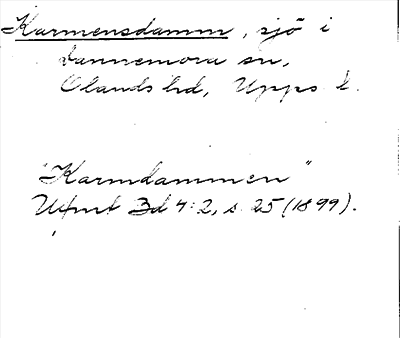 Karmensdamm, sjö i
Dannemora sn,
Olands hd, Upps. l.
"Karmdammen"
Utfmt Bd 4:2, s. 25 (1899).